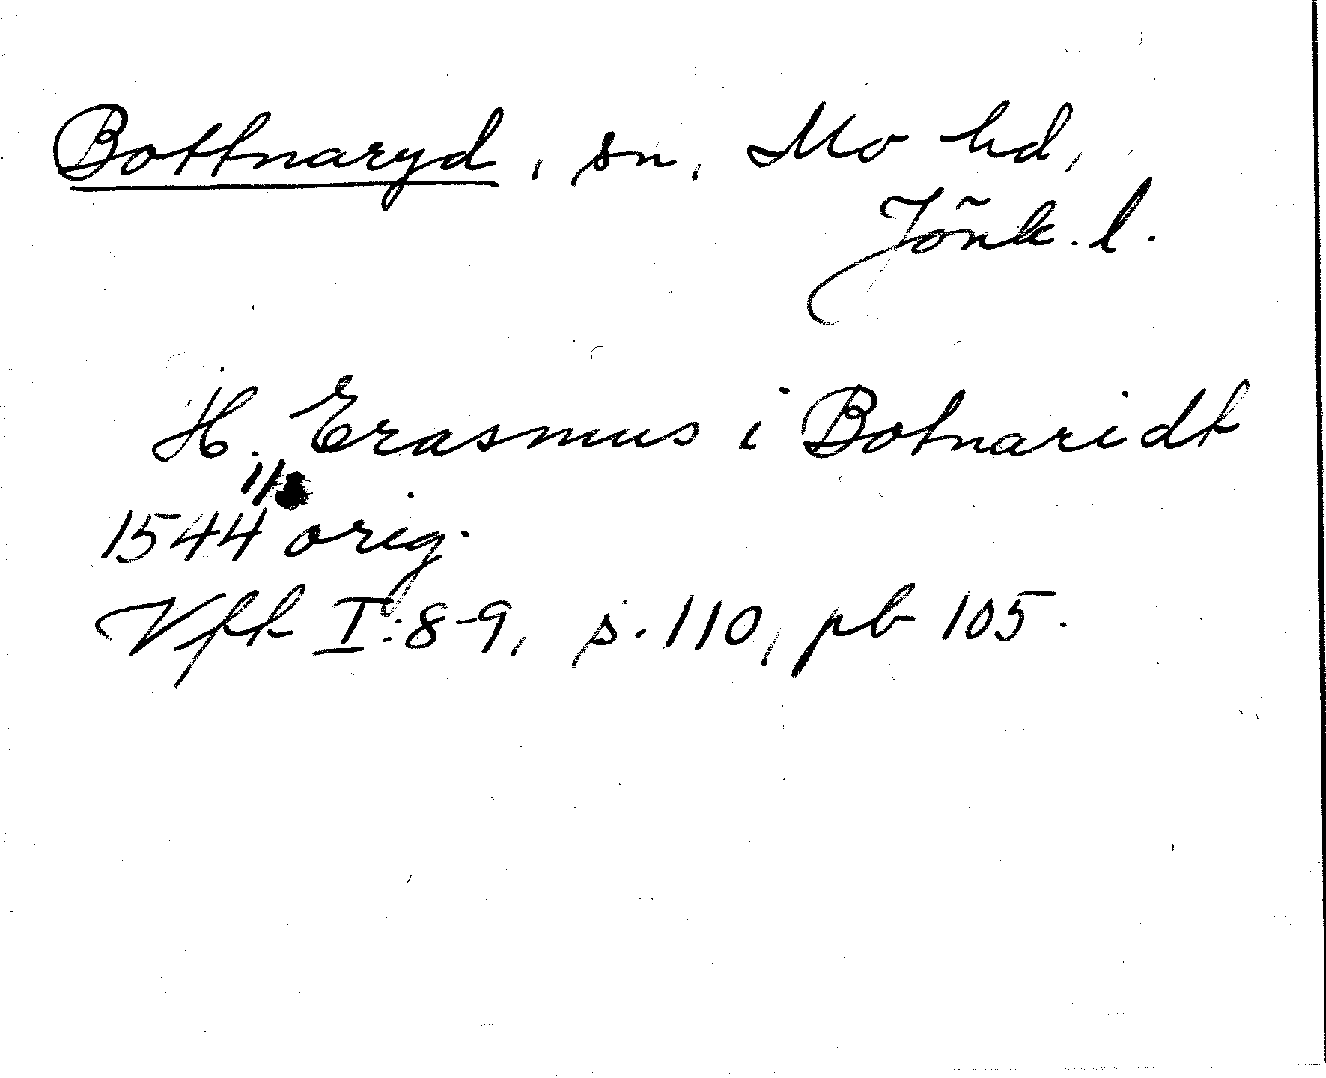 Bottnaryd, sn, Mo hd,
Jönk. l.
H. Erasmus i Botnaridt
1544 orig.
Vfk I:8-9, s. 110, pb 105.